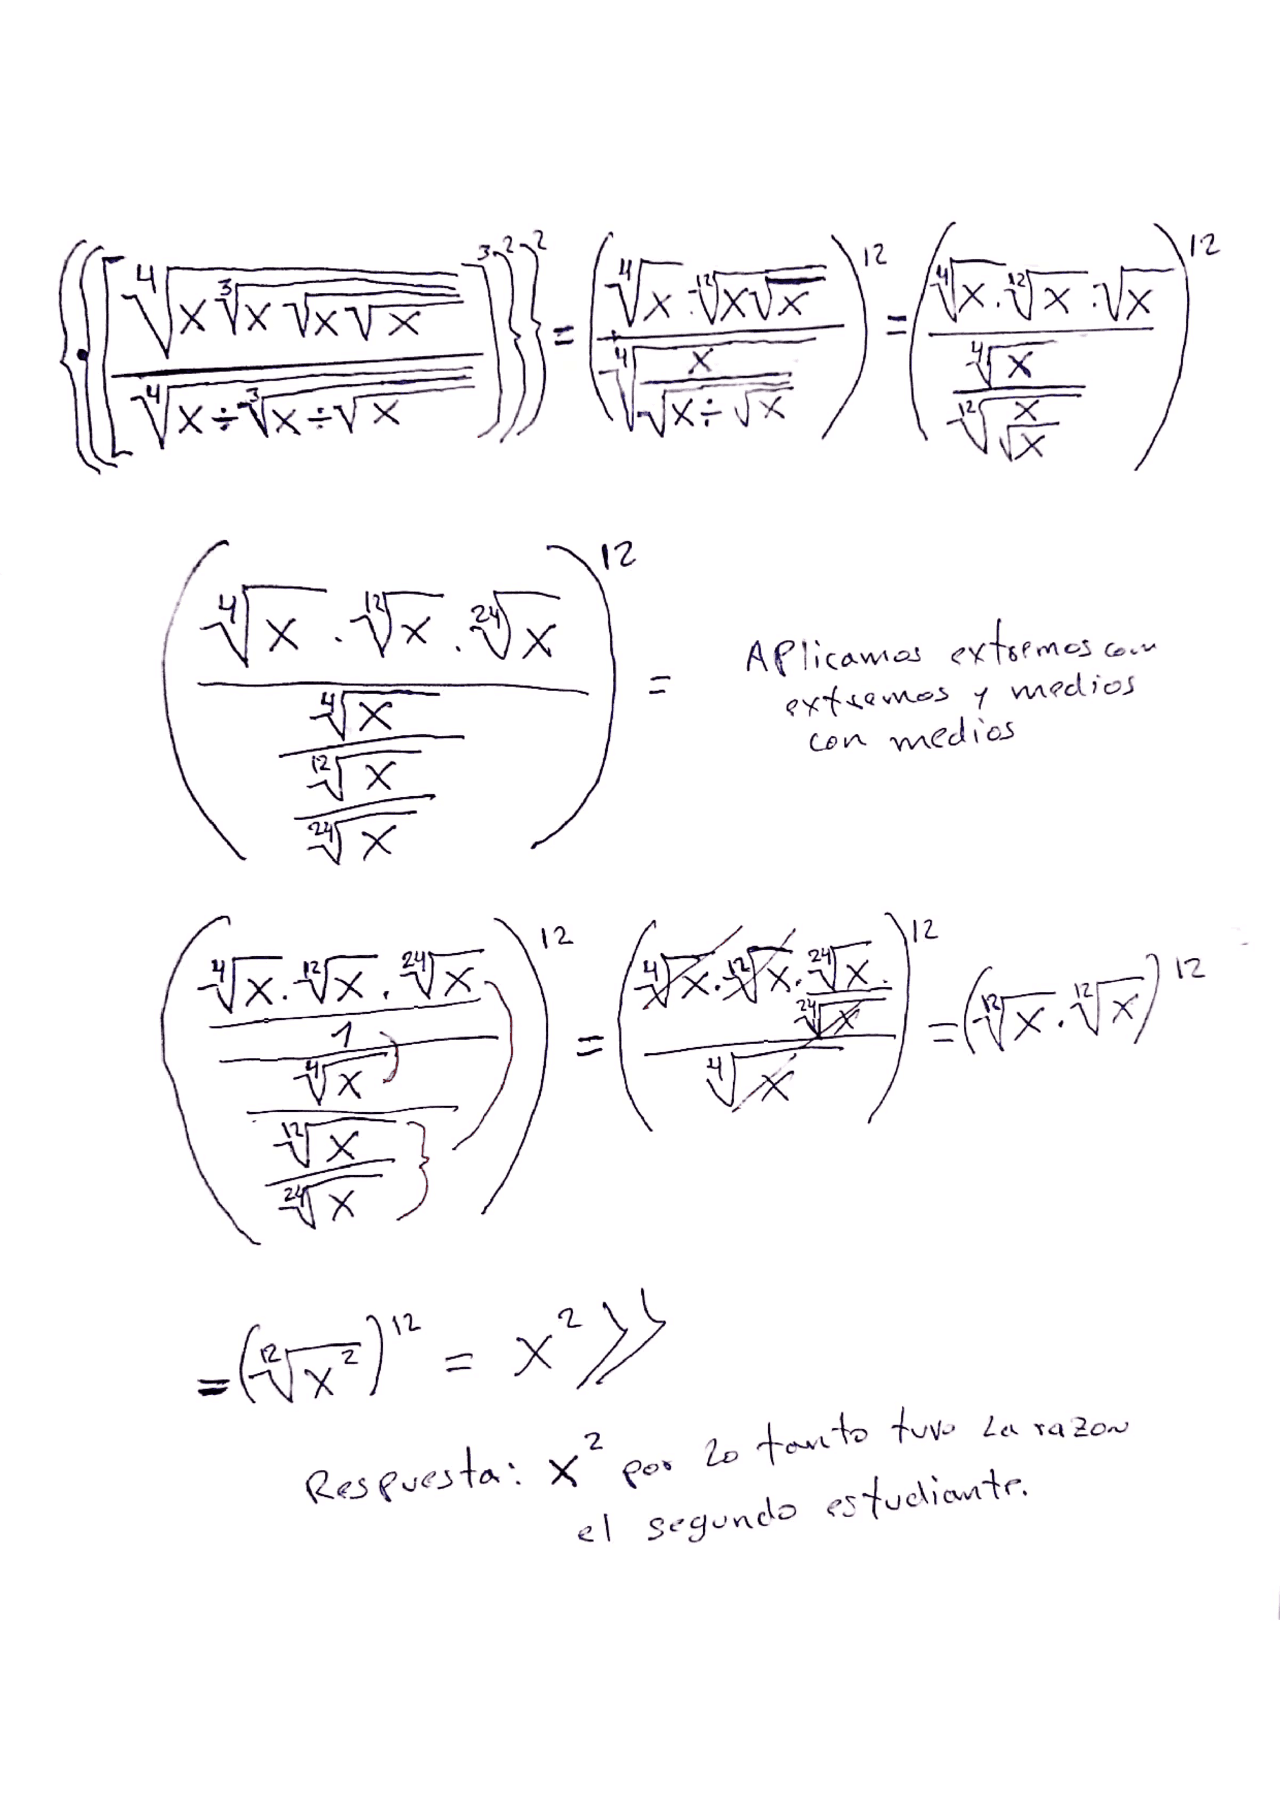 {{[ ⁴√(x ³√(x √(x √x))) / ⁴√(x ÷ ³√(x ÷ √x)) ]³}²}² = ( ⁴√x · ¹²√(x√x) / ⁴√(x / √(x ÷ √x)) )¹² = ( ⁴√x · ¹²√x · √x / (⁴√x / ¹²√(x / √x)) )¹²
( ⁴√x · ¹²√x · ²⁴√x / (⁴√x / (¹²√x / ²⁴√x)) )¹² =
Aplicamos extremos con
extremos y medios
con medios
( (⁴√x · ¹²√x · ²⁴√x / 1) / (⁴√x / (¹²√x / ²⁴√x)) )¹² = ( ⁴√x · ¹²√x · (²⁴√x · / ²⁴√x) / ⁴√x )¹² = (¹²√x · ¹²√x)¹²
= (¹²√x²)¹² = x²
Respuesta: x² por lo tanto tuvo la razon
el segundo estudiante.